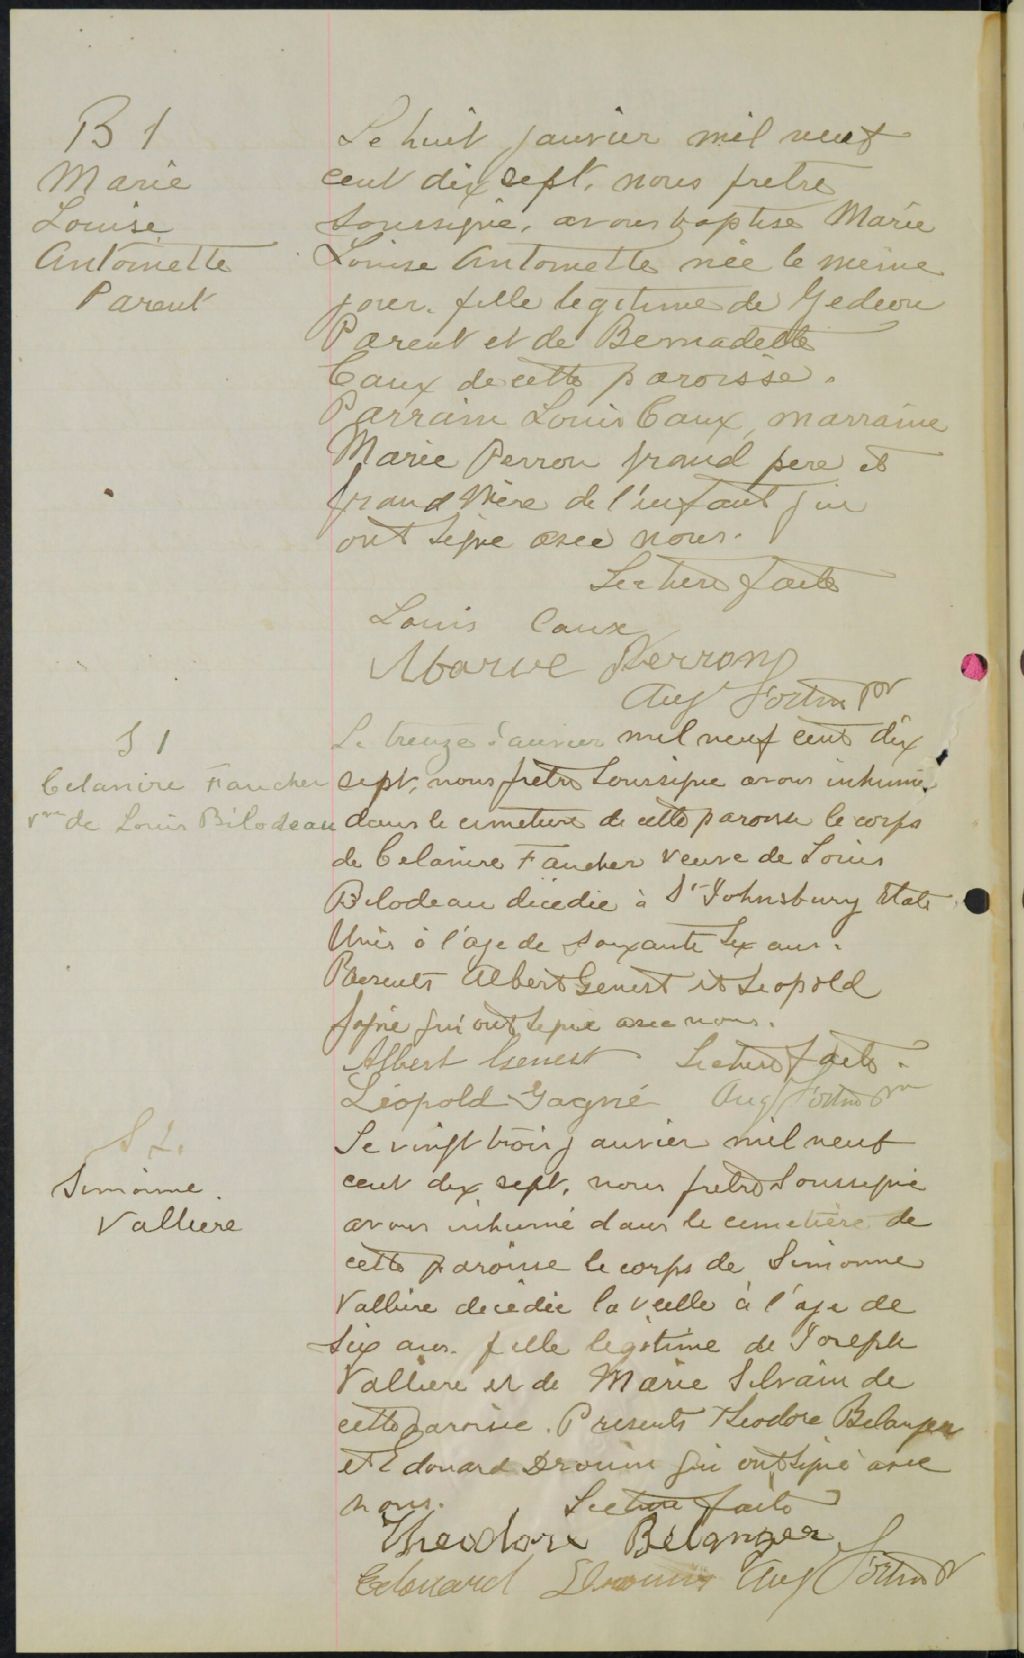 B 1
Marie
Louise
Antoinette
Parent
Le huit janvier mil neuf
cent dix sept, nous prêtre
soussigné, avons baptisé Marie
Louise Antoinette née le même
jour, fille legitime de Gedeon
Parent et de Bernadette
Caux de cette paroisse.
Parrain Louis Caux, marraine
Marie Perron grand père et
grand Mère de l'enfant qui
ont signé avec nous.
Lecture faite
Louis Caux
Marie Perron
Aug Fortin ptr
S 1
Celanire Faucher
vve de Louis Bilodeau
Le treize janvier mil neuf cent dix
sept, nous prêtre soussigné avons inhumé
dans le cimetière de cette paroisse le corps
de Celanire Faucher veuve de Louis
Bilodeau décédée à St Johnsbury Etats
Unis à l'age de soixante six ans.
Presents Albert Genest et Leopold
Gagné qui ont signé avec nous.
Albert Genest Lecture faite.
Léopold Gagné Aug Fortin ptr
S 2.
Simonne
Valliere
Le vingt trois janvier mil neuf
cent dix sept, nous prêtre soussigné
avons inhumé dans le cimetière de
cette paroisse le corps de Simonne
Vallière décédée la veille à l'age de
six ans. fille legitime de Joseph
Valliere et de Marie Silvain de
cette paroisse. Presents Theodore Belanger
et Edouard Drouin qui ont signé avec
nous. Lecture faite
Theodore Belanger
Edouard Drouin Aug Fortin ptr